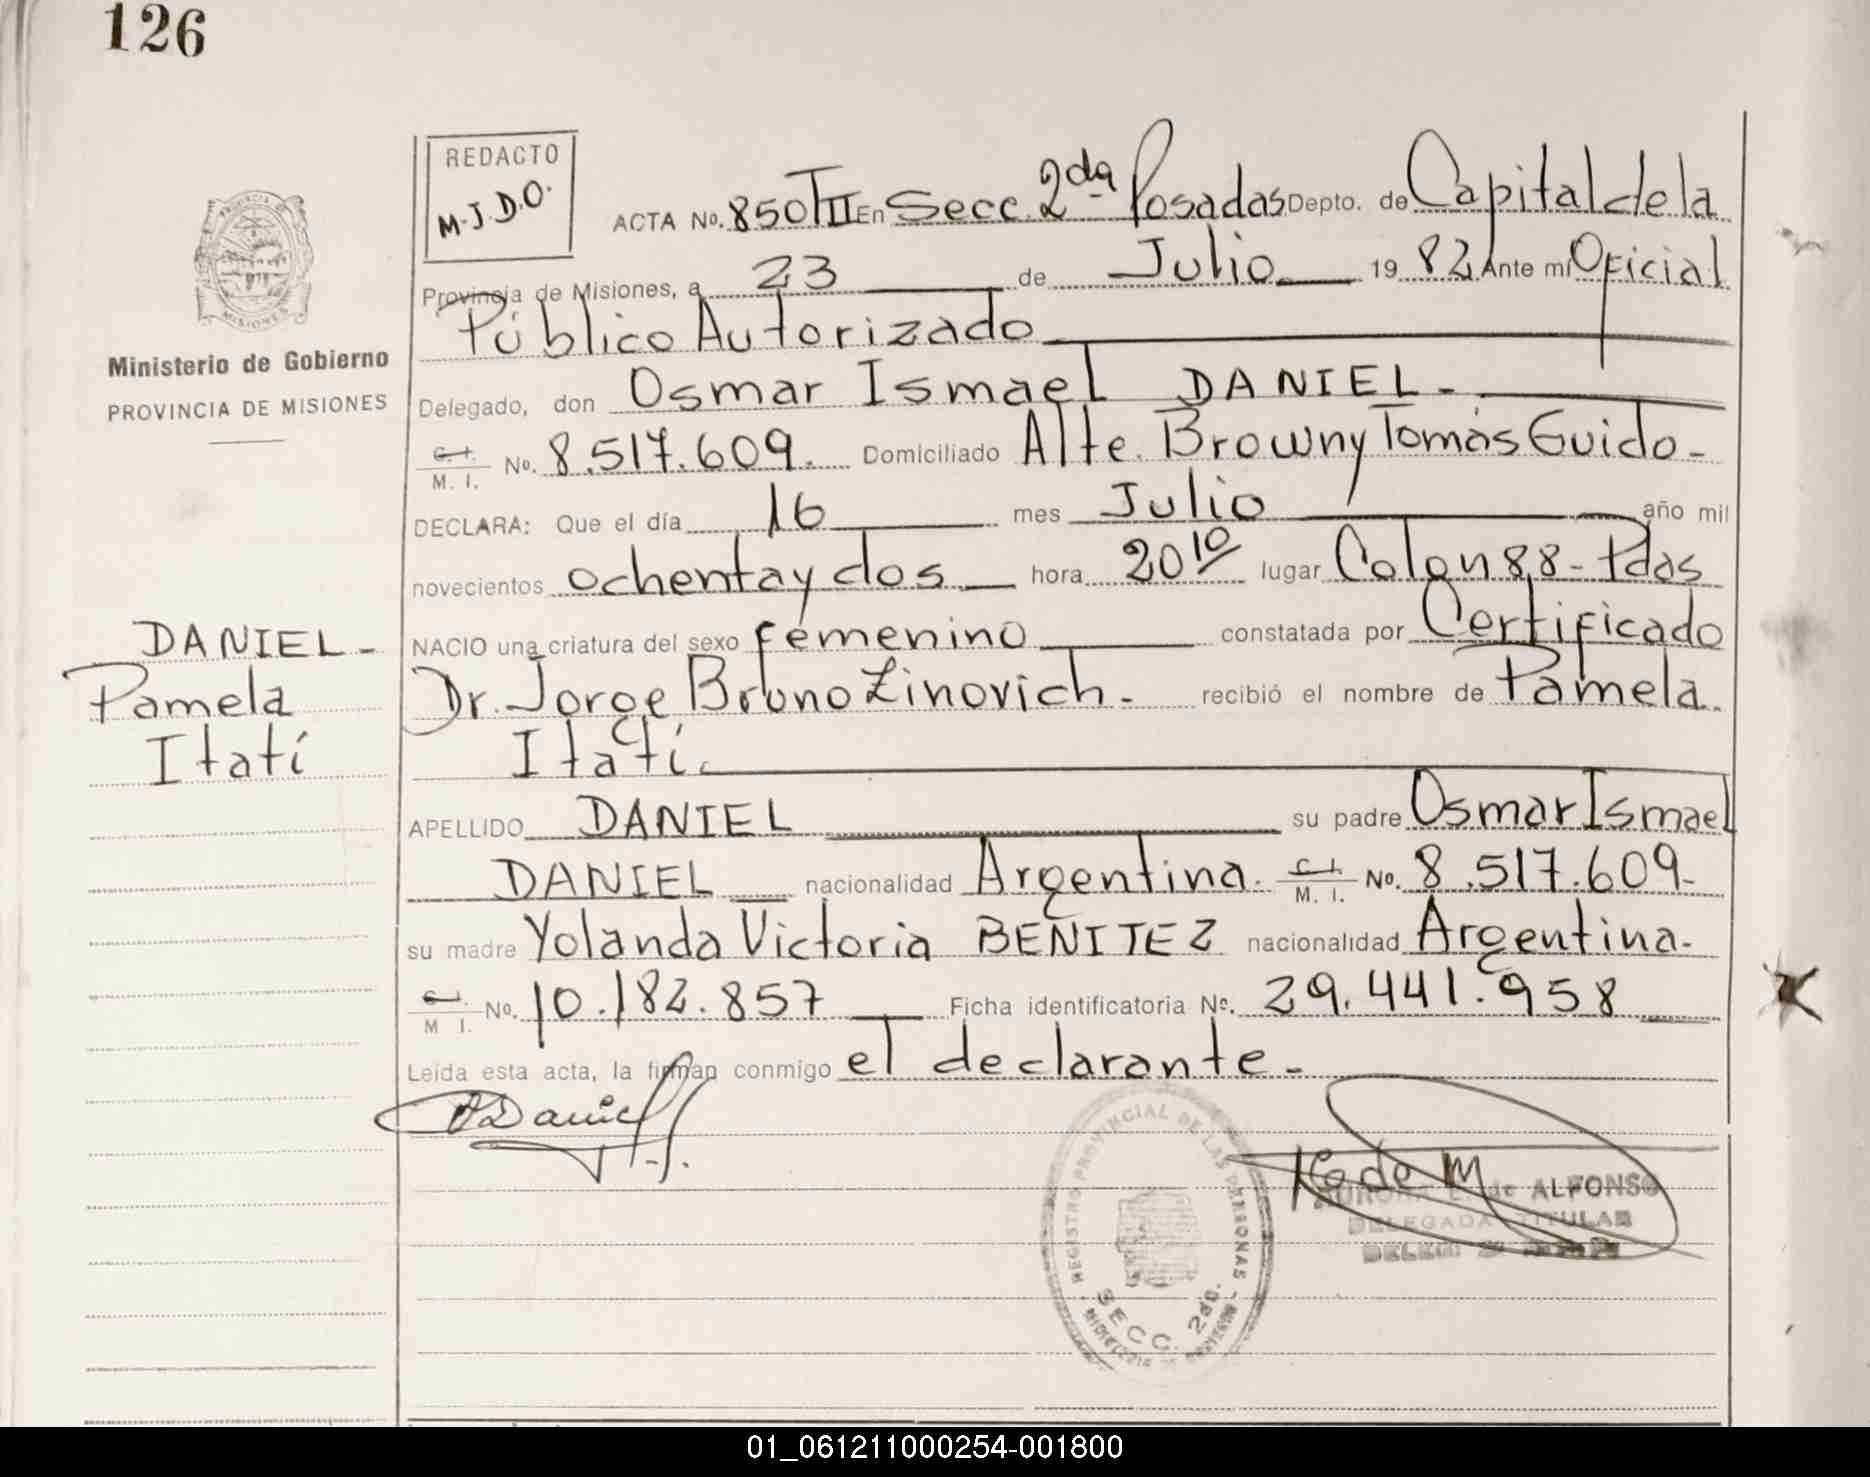 126
REDACTO
M.J.D.O.
ACTA No. 850 TII En Secc. 2da Posadas Depto. de Capital de la
Provincia de Misiones, a 23 de Julio 1982 Ante mí Oficial
Público Autorizado
Ministerio de Gobierno
PROVINCIA DE MISIONES
Delegado, don Osmar Ismael DANIEL.-
C. I. M. I. No. 8.517.609. Domiciliado Alte. Brown y Tomás Guido-
DECLARA: Que el día 16 mes Julio año mil
novecientos ochenta y dos hora 20 10 lugar Colon 88- Pdas
NACIO una criatura del sexo femenino constatada por Certificado
Dr. Jorge Bruno Zinovich.- recibió el nombre de Pamela
Itatí.
DANIEL-
Pamela
Itatí
APELLIDO DANIEL su padre Osmar Ismael
DANIEL nacionalidad Argentina. C. I. M. I. No. 8.517.609-
su madre Yolanda Victoria BENITEZ nacionalidad Argentina.-
C. I. M I. No. 10.182.857 Ficha identificatoria No. 29.441.958
Leida esta acta, la firman conmigo el declarante.-
REGISTRO PROVINCIAL DE LAS PERSONAS
SECC. 2da.
de ALFONSO
DELEGADA TITULAR
01_061211000254-001800